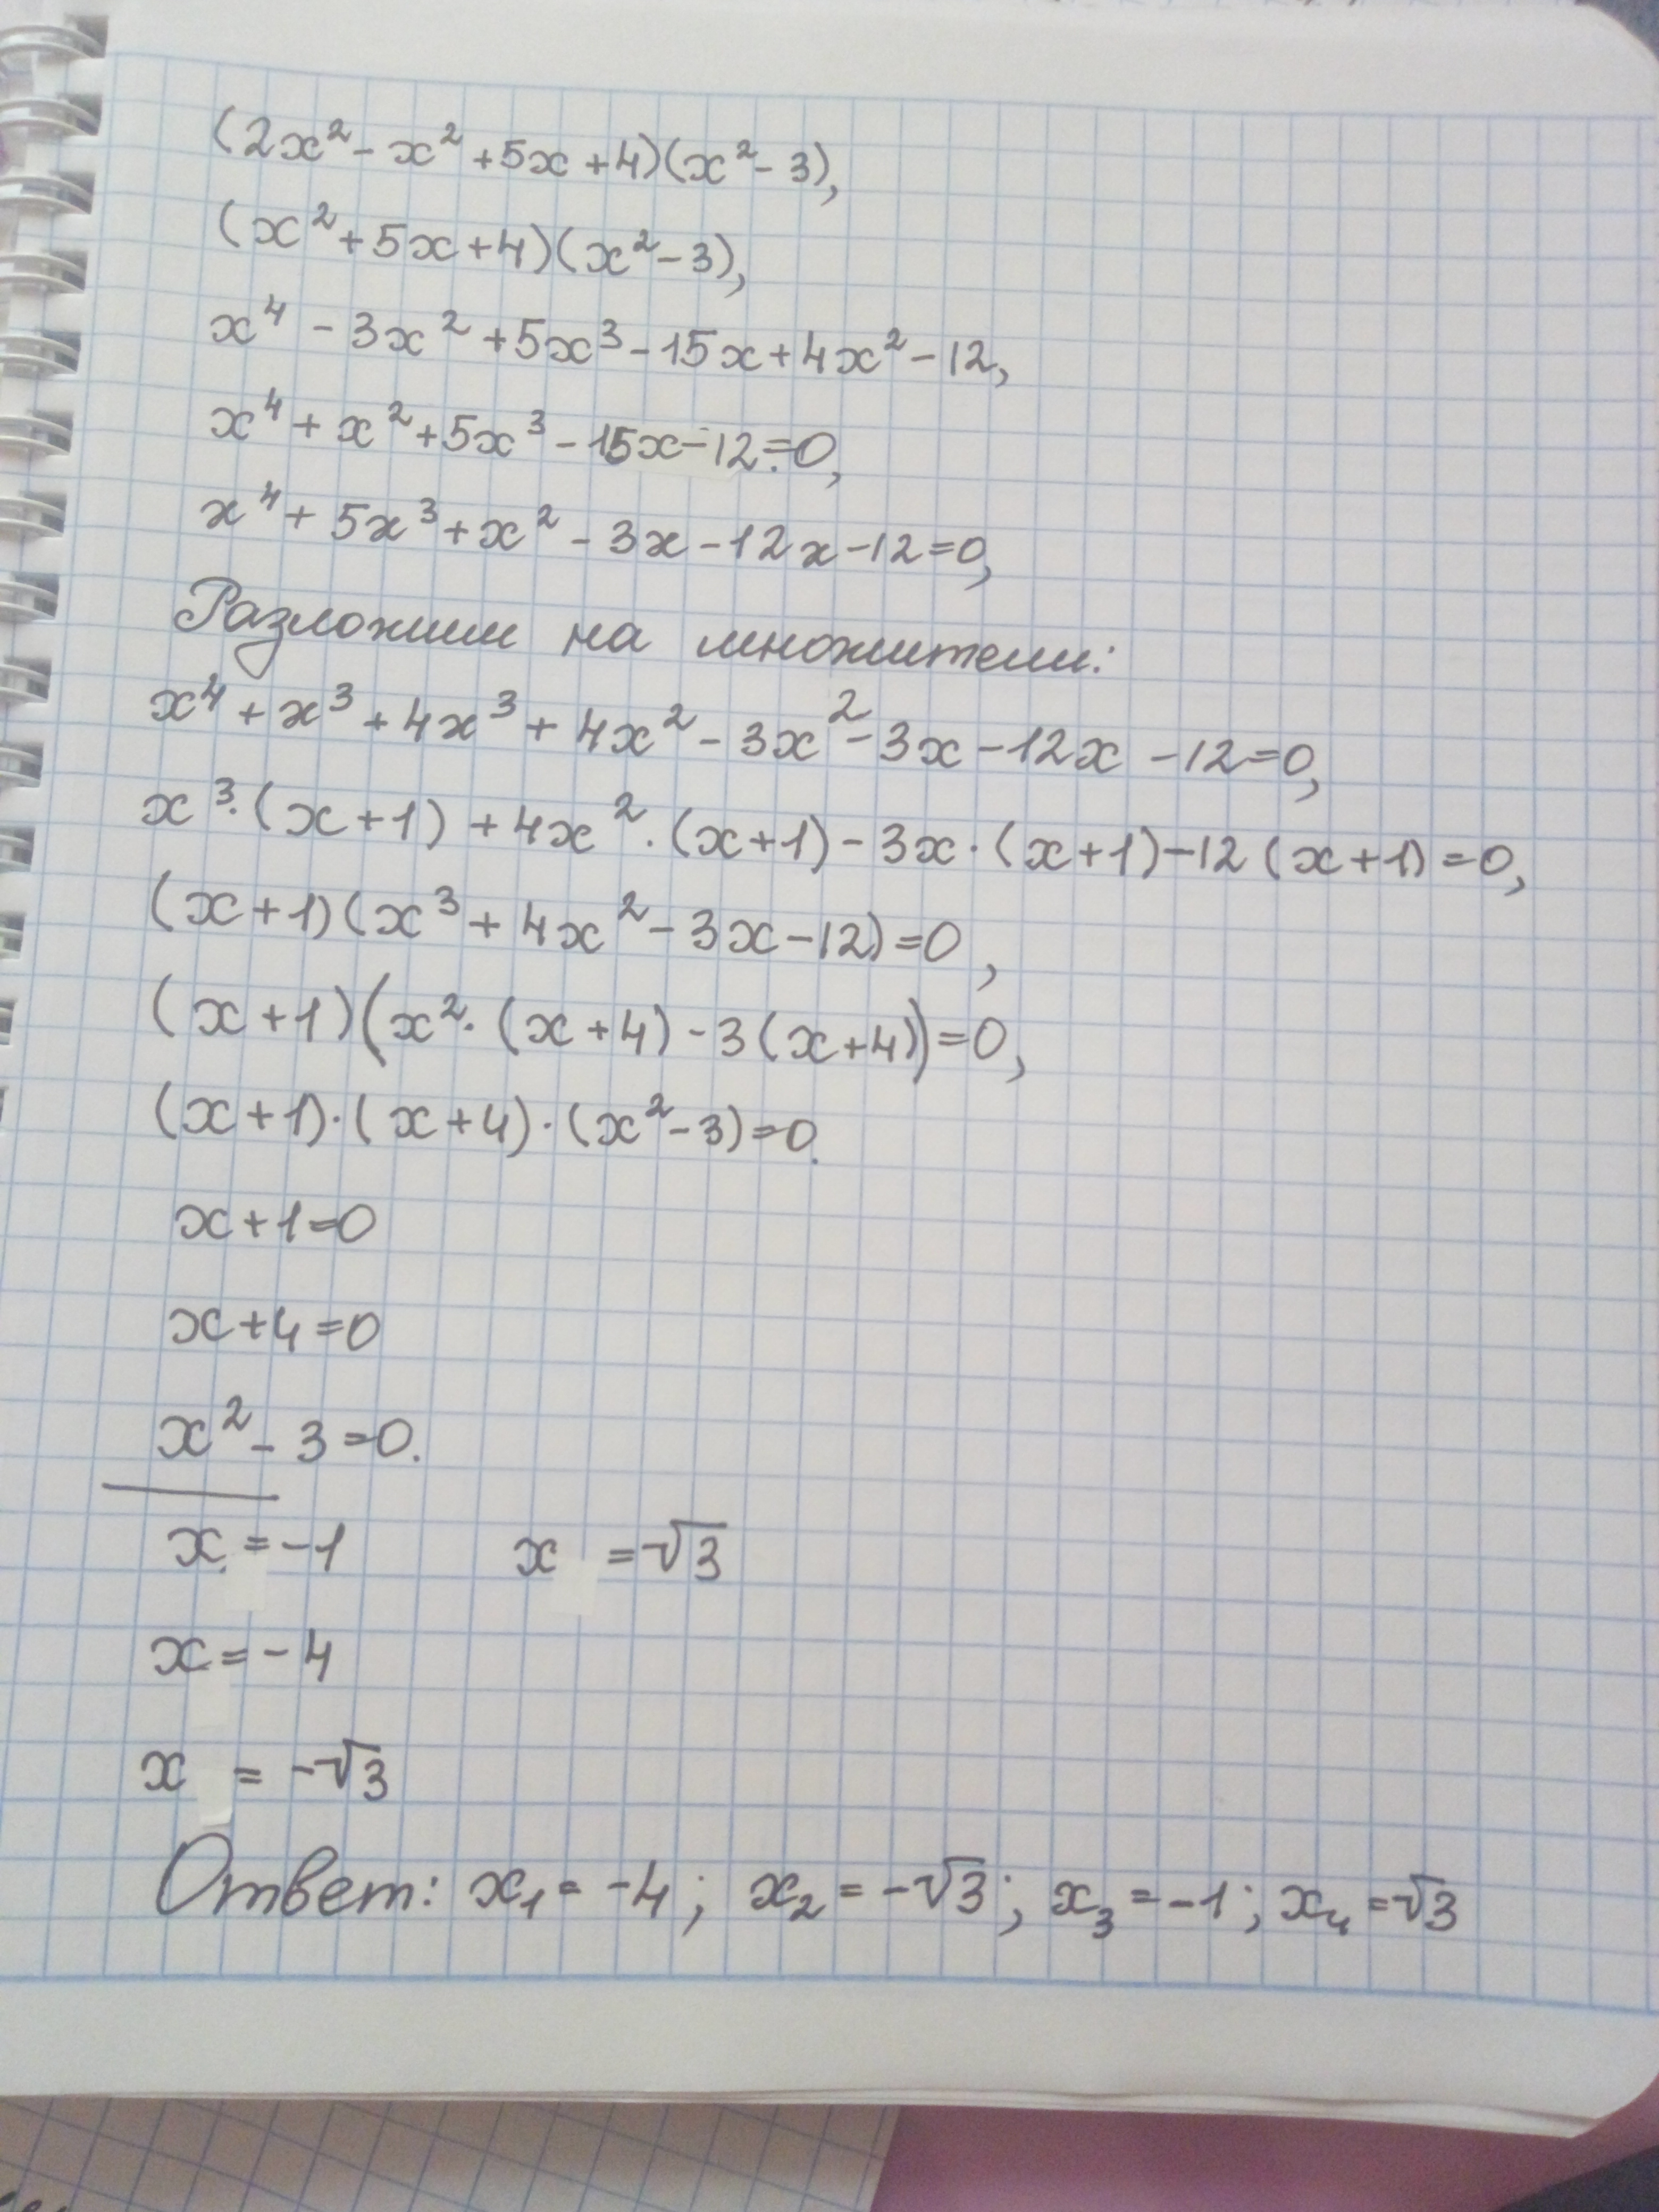 (2x² - x² + 5x + 4)(x² - 3),
(x² + 5x + 4)(x² - 3),
x⁴ - 3x² + 5x³ - 15x + 4x² - 12,
x⁴ + x² + 5x³ - 15x - 12 = 0,
x⁴ + 5x³ + x² - 3x - 12x - 12 = 0,
Разложим на множители:
x⁴ + x³ + 4x³ + 4x² - 3x² - 3x - 12x - 12 = 0,
x³·(x + 1) + 4x²·(x + 1) - 3x·(x + 1) - 12(x + 1) = 0,
(x + 1)(x³ + 4x² - 3x - 12) = 0,
(x + 1)(x²·(x + 4) - 3(x + 4)) = 0,
(x + 1)·(x + 4)·(x² - 3) = 0.
x + 1 = 0
x + 4 = 0
x² - 3 = 0.
x = -1 x = √3
x = -4
x = -√3
Ответ: x₁ = -4; x₂ = -√3; x₃ = -1; x₄ = √3